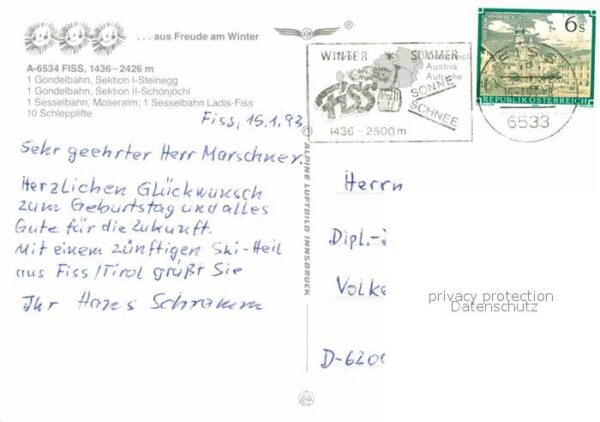 ...aus Freude am Winter
A-6534 FISS, 1436-2426 m
1 Gondelbahn, Sektion I-Steinegg
1 Gondelbahn, Sektion II-Schönjöchl
1 Sesselbahn, Moseralm; 1 Sesselbahn Ladis-Fiss
10 Schlepplifte
Fiss, 15.1.93
Sehr geehrter Herr Marschner.
Herzlichen Glückwunsch
zum Geburtstag und alles
Gute für die Zukunft.
Mit einem zünftigen Ski-Heil
aus Fiss/Tirol grüßt Sie
Ihr Hans Schramm
ALPINE LUFTBILD INNSBRUCK
WINTER * SOMMER
Austria
FISS
SONNE
SCHNEE
1436-2500 m
6 S
REPUBLIK ÖSTERREICH
FISS
6533
Herrn
Dipl.-
Volke
D-620
privacy protection
Datenschutz